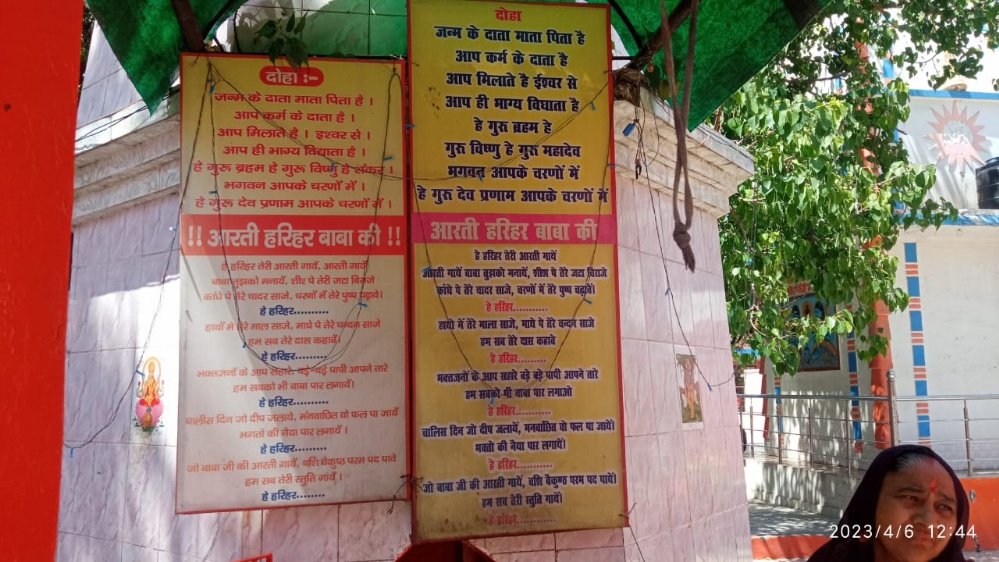 दोहा :-
जन्म के दाता माता पिता है ।
आप कर्म के दाता है ।
आप मिलाते है । इश्वर से ।
आप ही भाग्य विद्याता है ।
हे गुरू ब्रहम हे गुरू विष्णु हे संकर ।
भगवन आपके चरणों में ।
हे गुरू देव प्रणाम आपके चरणों में ।
!! आरती हरिहर बाबा की !!
हे हरिहर तेरी आरती गायें, आरती गायें
बाबा तुझको मनायें, शीश पे तेरी जटा बिराजे
कांधे पे तेरे चादर साजे, चरणों में तेरे पुष्प चढ़ावे।
हे हरिहर..........
हाथों में तेरे माल साजे, माथे पे तेरे चन्दन साजे
हम सब तेरे दास कहावें
हे हरिहर..........
भक्तजनों के आप सहारे, बड़े-बड़े पापी आपने तारे
हम सबको भी बाबा पार लगावें।
हे हरिहर..........
चालीस दिन जो दीप जलाये, मंनवाछित वो फल पा जायें
भगतों की नैया पार लगायें ।
हे हरिहर..........
जो बाबा जी की आरती गायें, बशि बैकुण्ठ परम पद पावें
हम सब तेरी स्तुति गायें ।
हे हरिहर........
दोहा
जन्म के दाता माता पिता है
आप कर्म के दाता है
आप मिलाते है ईश्वर से
आप ही भाग्य विघाता है
हे गुरु ब्रहम हे
गुरु विष्णु हे गुरु महादेव
भगवन आपके चरणों में
हे गुरु देव प्रणाम आपके चरणों में
आरती हरिहर बाबा की
हे हरिहर तेरी आरती गायें
आरती गायें बाबा तुझको मनायें, शीश पे तेरे जटा विराजे
कांधे पे तेरे चादर साजे, चरणों में तेरे पुष्प चढ़ावें।
हे हरिहर...........
हाथो में तेरे माला साजे, माथे पे तेरे चन्दन साजे
हम सब तेरे दास कहावे
हे हरिहर..........
भक्तजनों के आप सहारे बड़े बड़े पापी आपने तारे
हम सबको भी बाबा पार लगाओ
हे हरिहर...........
चालिस दिन जो दीप जलायें, मनवाछित वो फल पा जायें।
भक्तो की नैया पार लगायें।
हे हरिहर...........
जो बाबा जी की आरती गायें, बशि बेकुण्ठ परम पद पायें।
हम सब तेरी स्तुति गायें।
हे हरिहर...........
2023/4/6 12:44